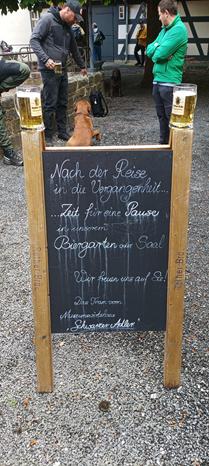 Nach der Reise
in die Vergangenheit...
...Zeit für eine Pause
in unserem
Biergarten oder Saal
Wir freuen uns auf Sie!
Das Team vom
Museumswirtshaus
„Schwarzer Adler"